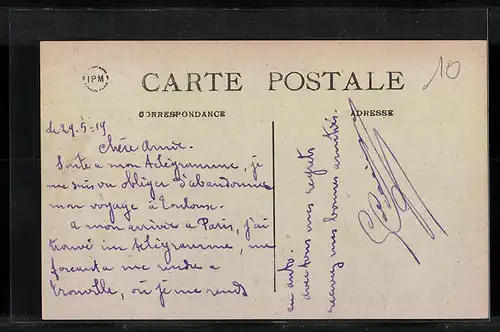 IPM
CARTE POSTALE
10
CORRESPONDANCE
ADRESSE
le 29-5-19
Chère Amie.
Suite a mon télégramme, je
me suis vu obliger d'abandonner
mon voyage à Toulouse.
a mon arrivée a Paris, j'ai
trouvé un télégramme, me
forcant a me rendre a
Trouville, où je me rends
en auto.
avec tous mes regrets
recevez mes bonnes amitiés.